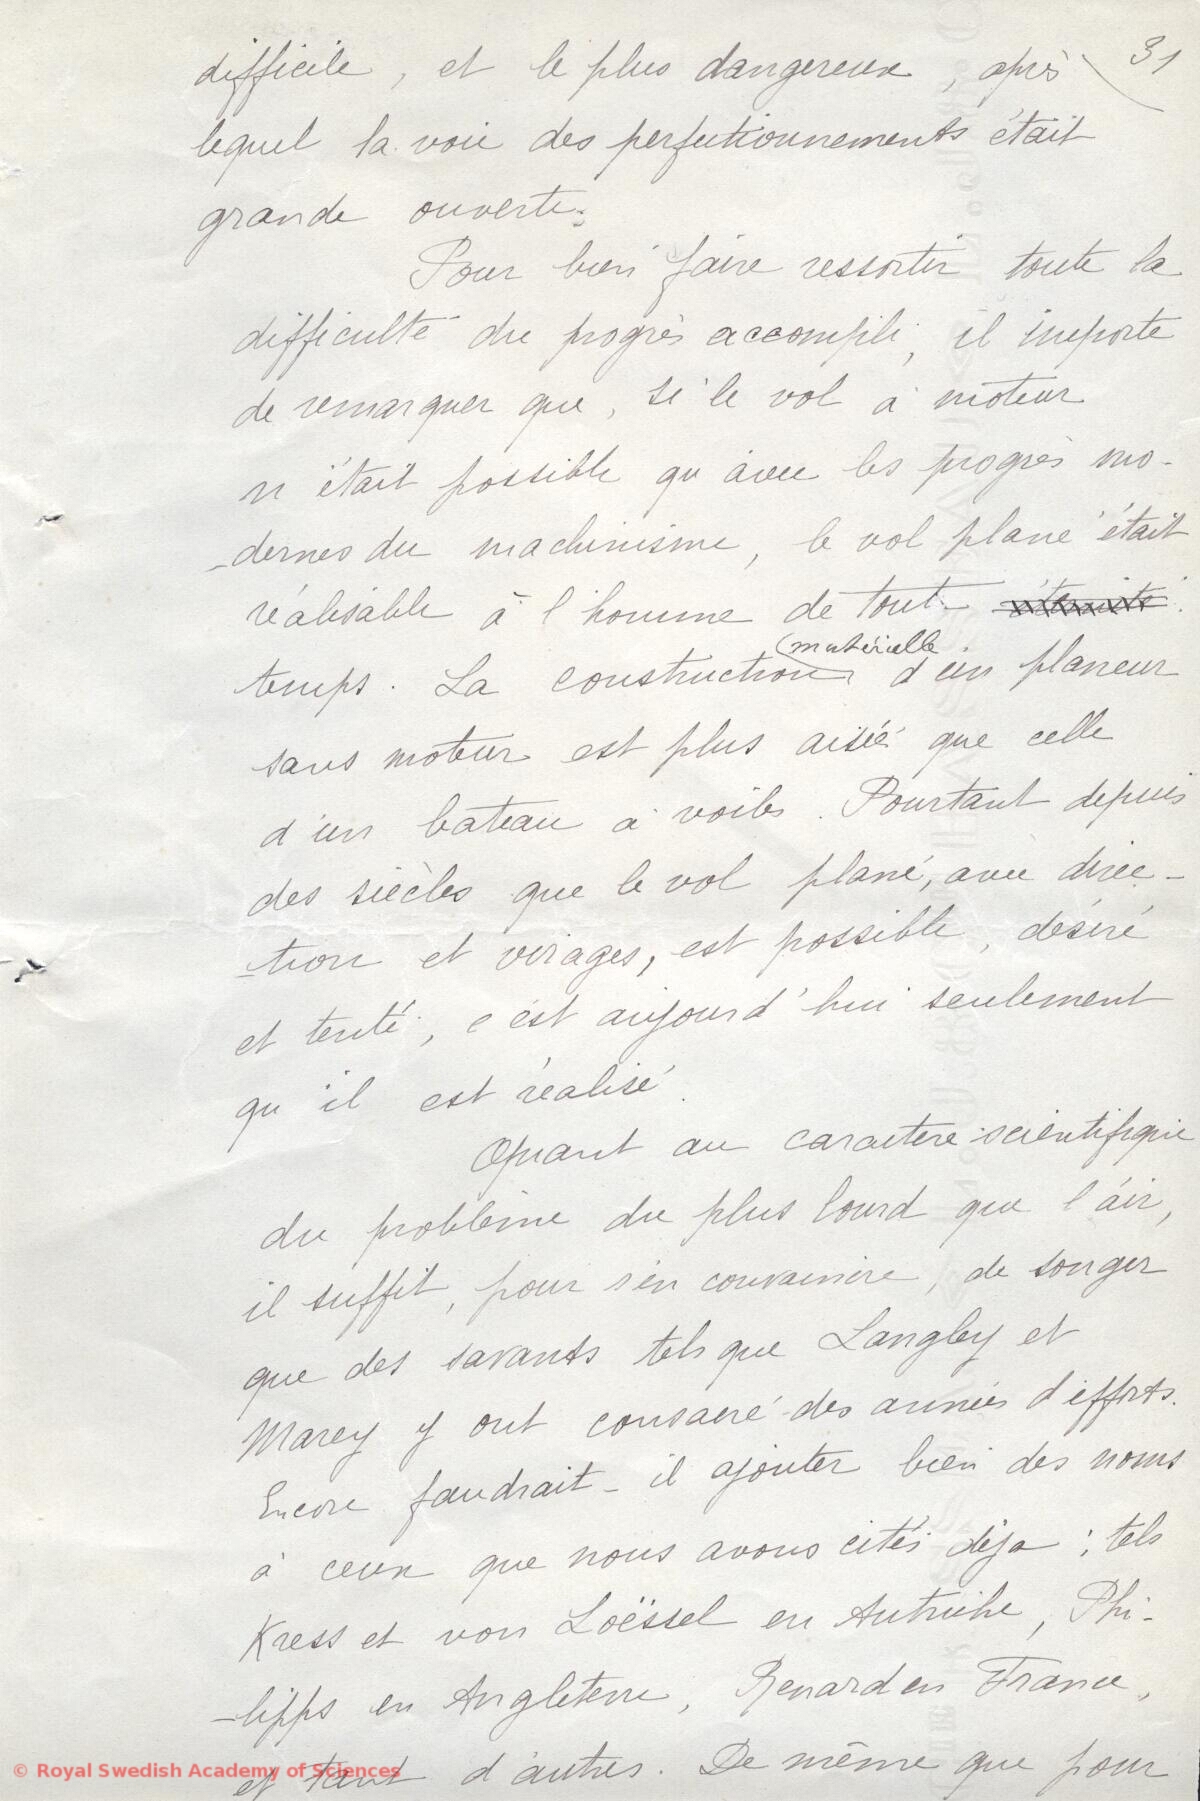 31
difficile, et le plus dangereux, après
lequel la voie des perfectionnements était
grande ouverte.
Pour bien faire ressortir toute la
difficulté du progrès accompli, il importe
de remarquer que, si le vol à moteur
n'était possible qu'avec les progrès mo-
-dernes du machinisme, le vol plané était
réalisable à l'homme de tout
temps. La construction matérielle d'un planeur
sans moteur est plus aisée que celle
d'un bateau à voiles. Pourtant depuis
des siècles que le vol plané, avec direc-
-tion et virages, est possible, désiré
et tenté, c'est aujourd'hui seulement
qu'il est réalisé.
Quant au caractère scientifique
du problème du plus lourd que l'air,
il suffit, pour s'en convaincre, de songer
que des savants tels que Langley et
Marey y ont consacré des années d'efforts.
Encore faudrait-il ajouter bien des noms
à ceux que nous avons cités déjà; tels
Kress et von Loëssel en Autriche, Phi-
-lipps en Angleterre, Renard en France,
et tant d'autres. De même que pour
© Royal Swedish Academy of Sciences